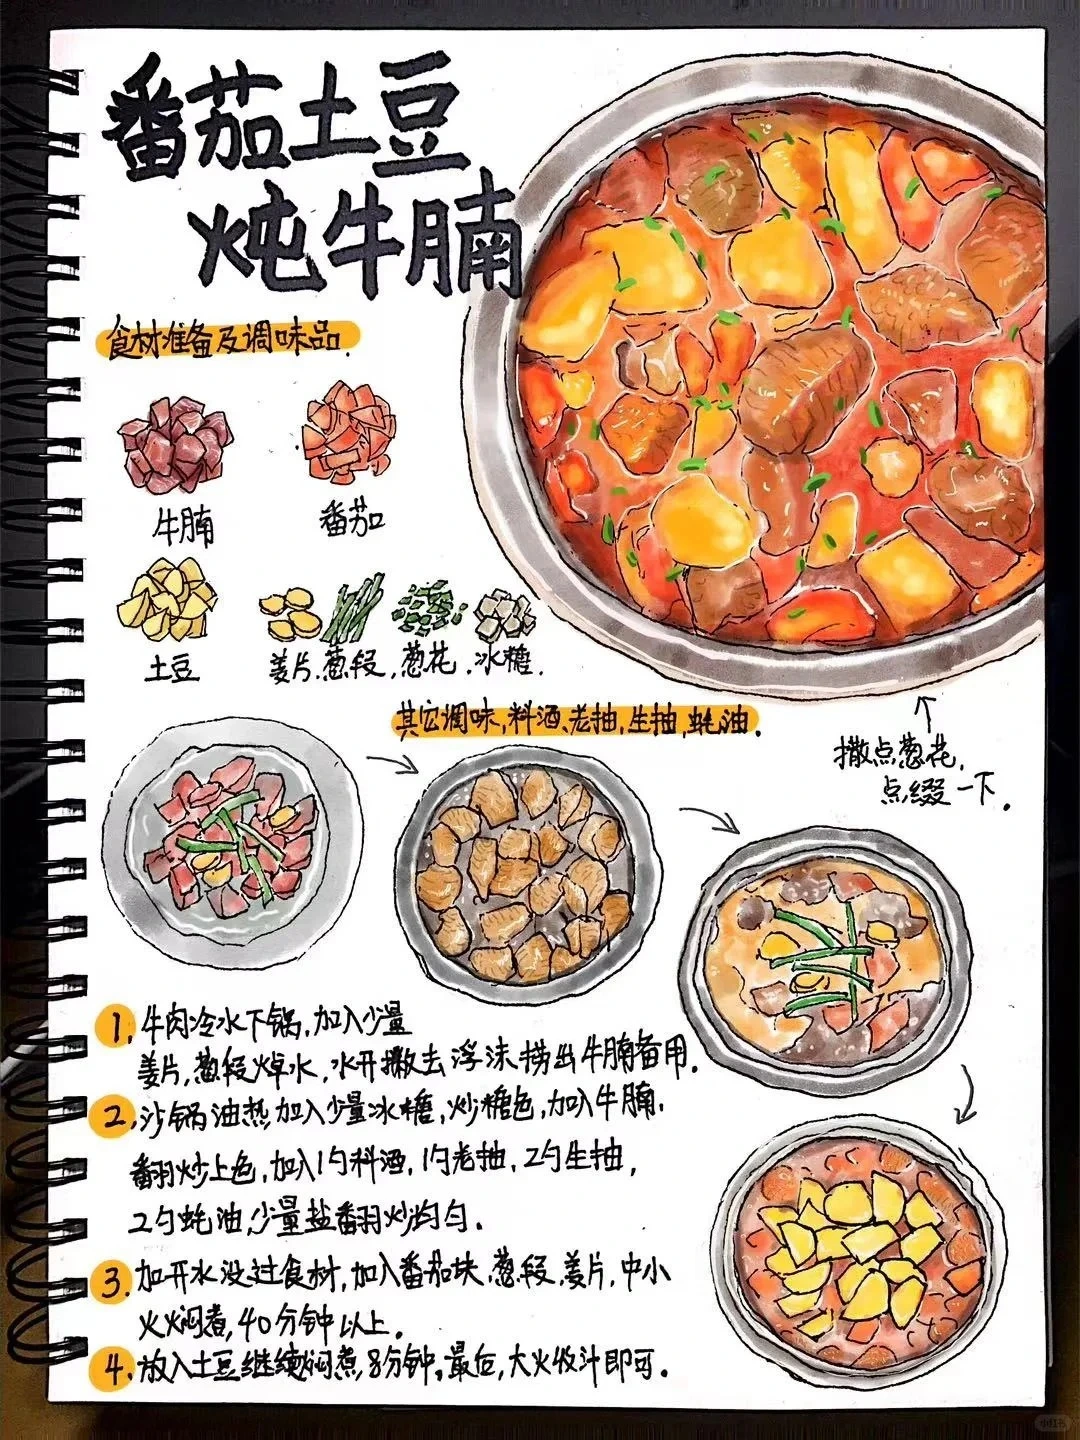 番茄土豆
炖牛腩
食材准备及调味品.
牛腩
番茄
土豆
姜片.葱段,葱花.冰糖.
其它调味,料酒、老抽,生抽,蚝油.
撒点葱花,
点缀一下.
1.牛肉冷水下锅,加入少量
姜片,葱段焯水,水开撇去浮沫捞出牛腩备用.
2.沙锅油热加入少量冰糖,炒糖色,加入牛腩.
翻炒上色,加入1勺料酒,1勺老抽,2勺生抽,
2勺蚝油,少量盐翻炒均匀.
3.加开水没过食材,加入番茄块,葱段,姜片,中小
火焖煮,40分钟以上.
4.放入土豆继续焖煮,8分钟,最后,大火收汁即可.
小红书